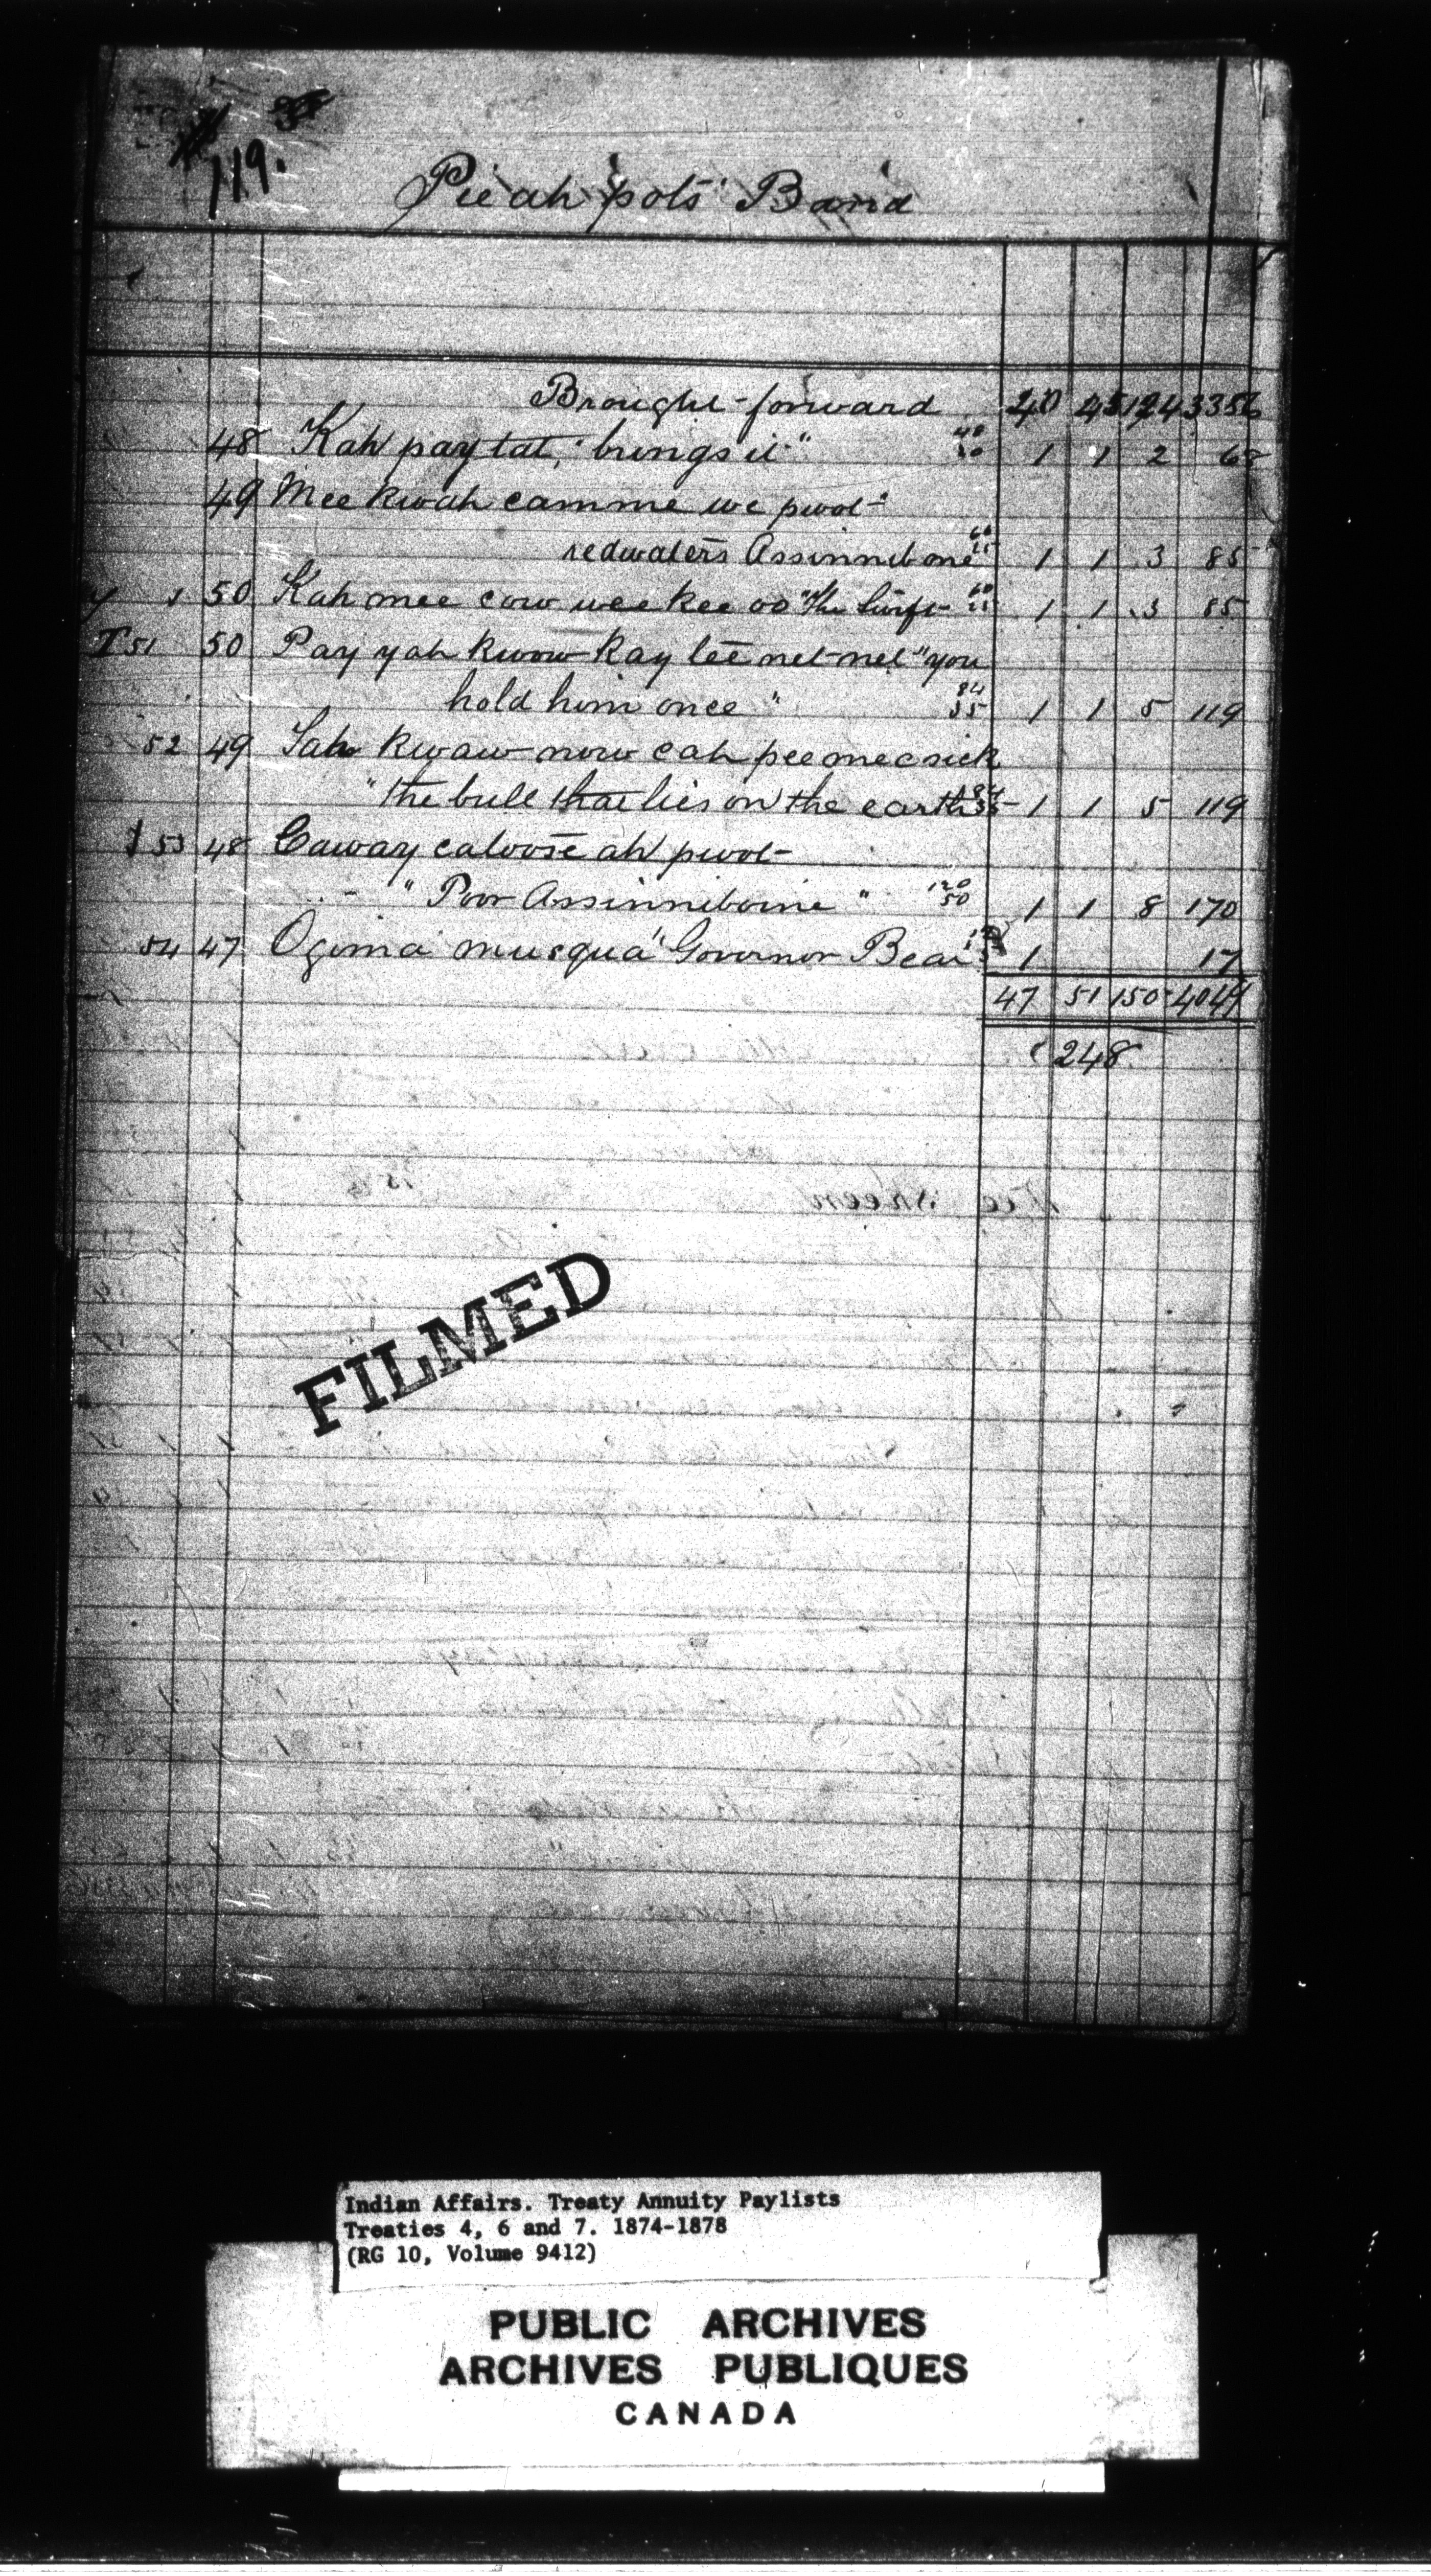 119.
Pie ah pots' Band
Brought forward 40 45 124 3356
48 Kah pay tat, "brings it" 48 20 1 1 2 68
49 Mee kwah camme we pwot
redwaters Assinnibone 60 25 1 1 3 85
50 Kah mee cow wee kee oo "The Swift 60 25 1 1 3 85
51 50 Pay yah kwow kay tee net net "you
hold him once" 84 35 1 1 5 119
52 49 Sah kwaw now cah pee mee sick
"the bull that lies on the earth 84 35 1 1 5 119
53 48 Caway catoose ah pwot
"Poor Assinniboine" 120 50 1 1 8 170
54 47 Ogima musqua "Governor Bear 1 17
47 51 150 4049
248
FILMED
Indian Affairs. Treaty Annuity Paylists
Treaties 4, 6 and 7. 1874-1878
(RG 10, Volume 9412)
PUBLIC ARCHIVES
ARCHIVES PUBLIQUES
CANADA